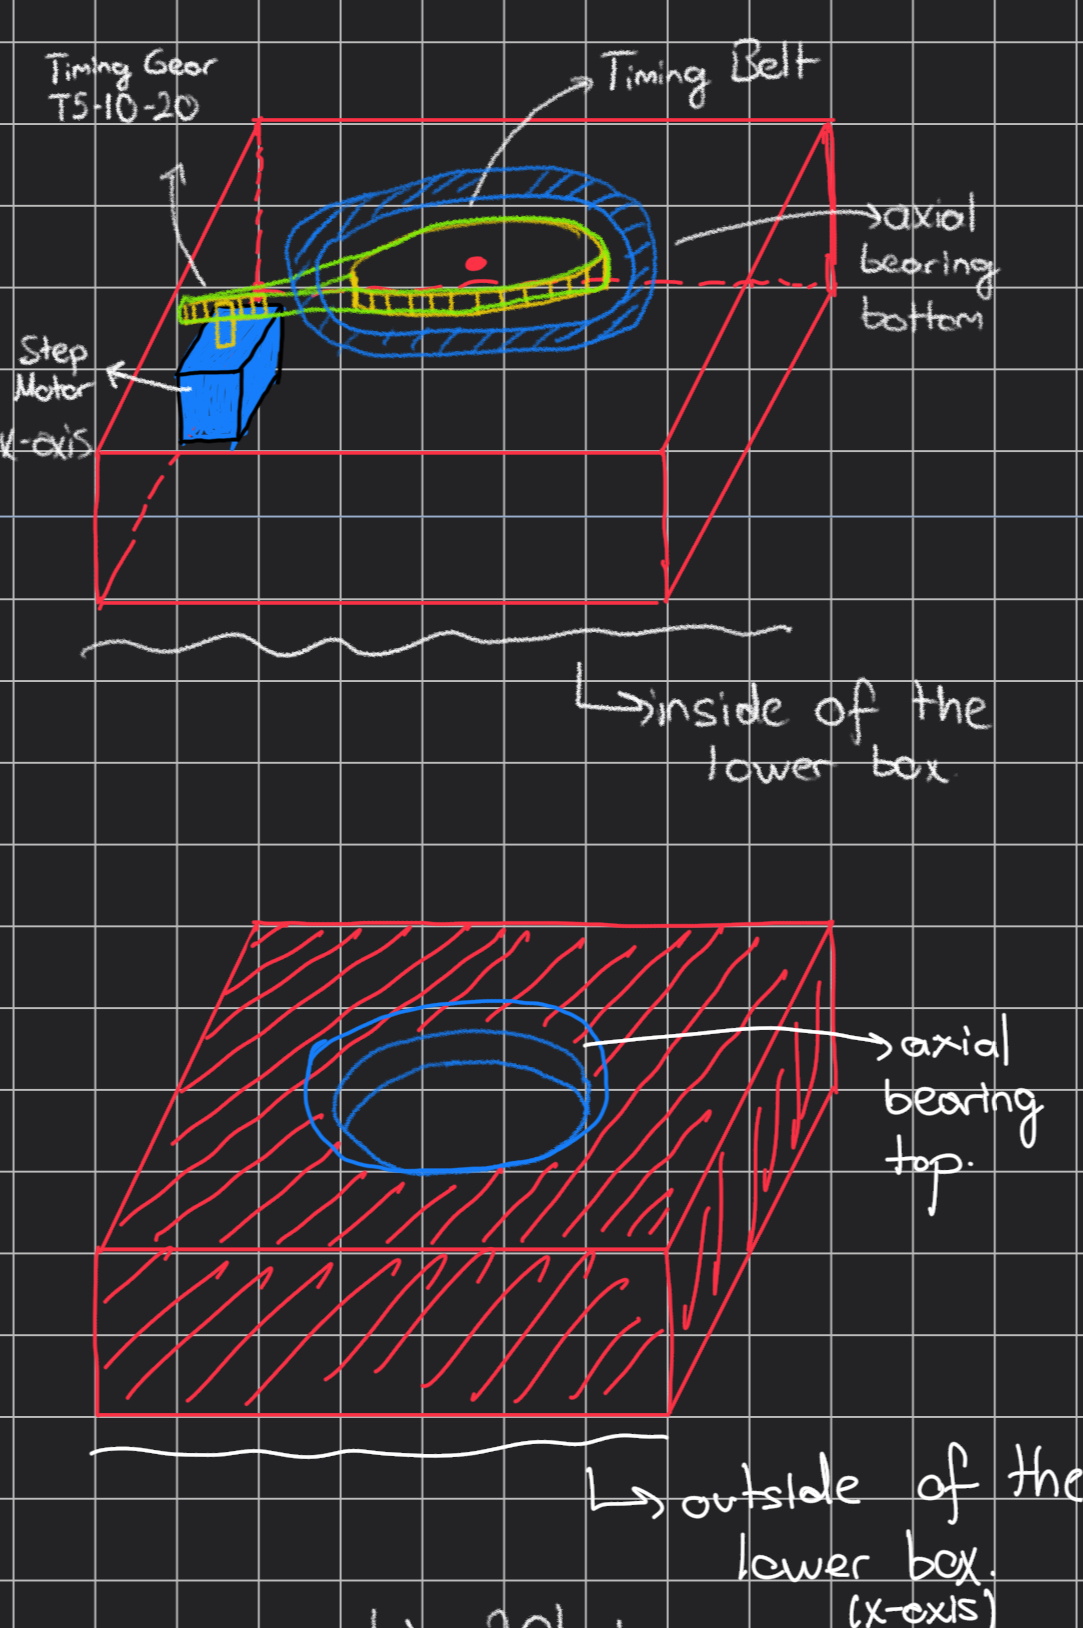 Timing Gear
T5-10-20
Timing Belt
axial
bearing
bottom
Step
Motor
x-axis
inside of the
lower box.
axial
bearing
top.
outside of the
lower box.
(x-axis)